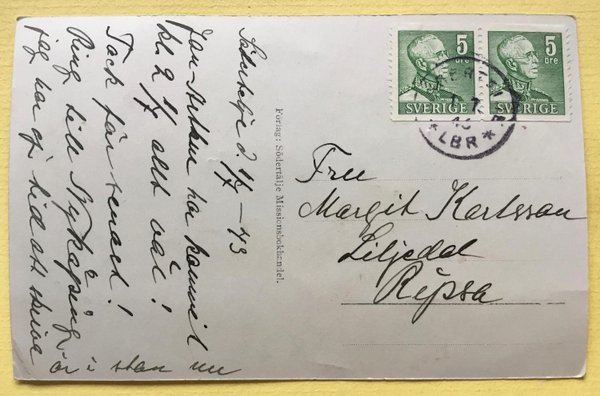 Södertelje d. 4/7 – 43
Jan-Sitkan har kommit
kl. 2 4/7 allt väl!
Tack för senast!
Ring till Nyköping,
jag har ej tid att skriva
är i stan nu
Förlag: Södertälje Missionsbokhandel.
5 öre
SVERIGE
5 öre
SVERIGE
LBR
Fru
Margit Karlsson
Liljedal
Ripsa